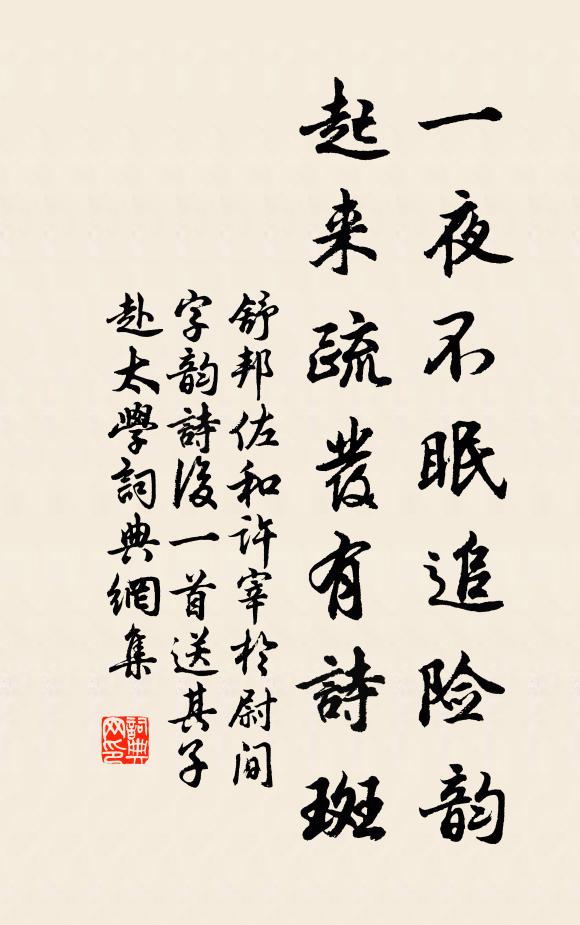 一夜不眠追险韵
起来疏發有詩斑
舒邦佐和许宰於尉间
字韵詩後一首送其子
赴太學詞典網集
詞典网印